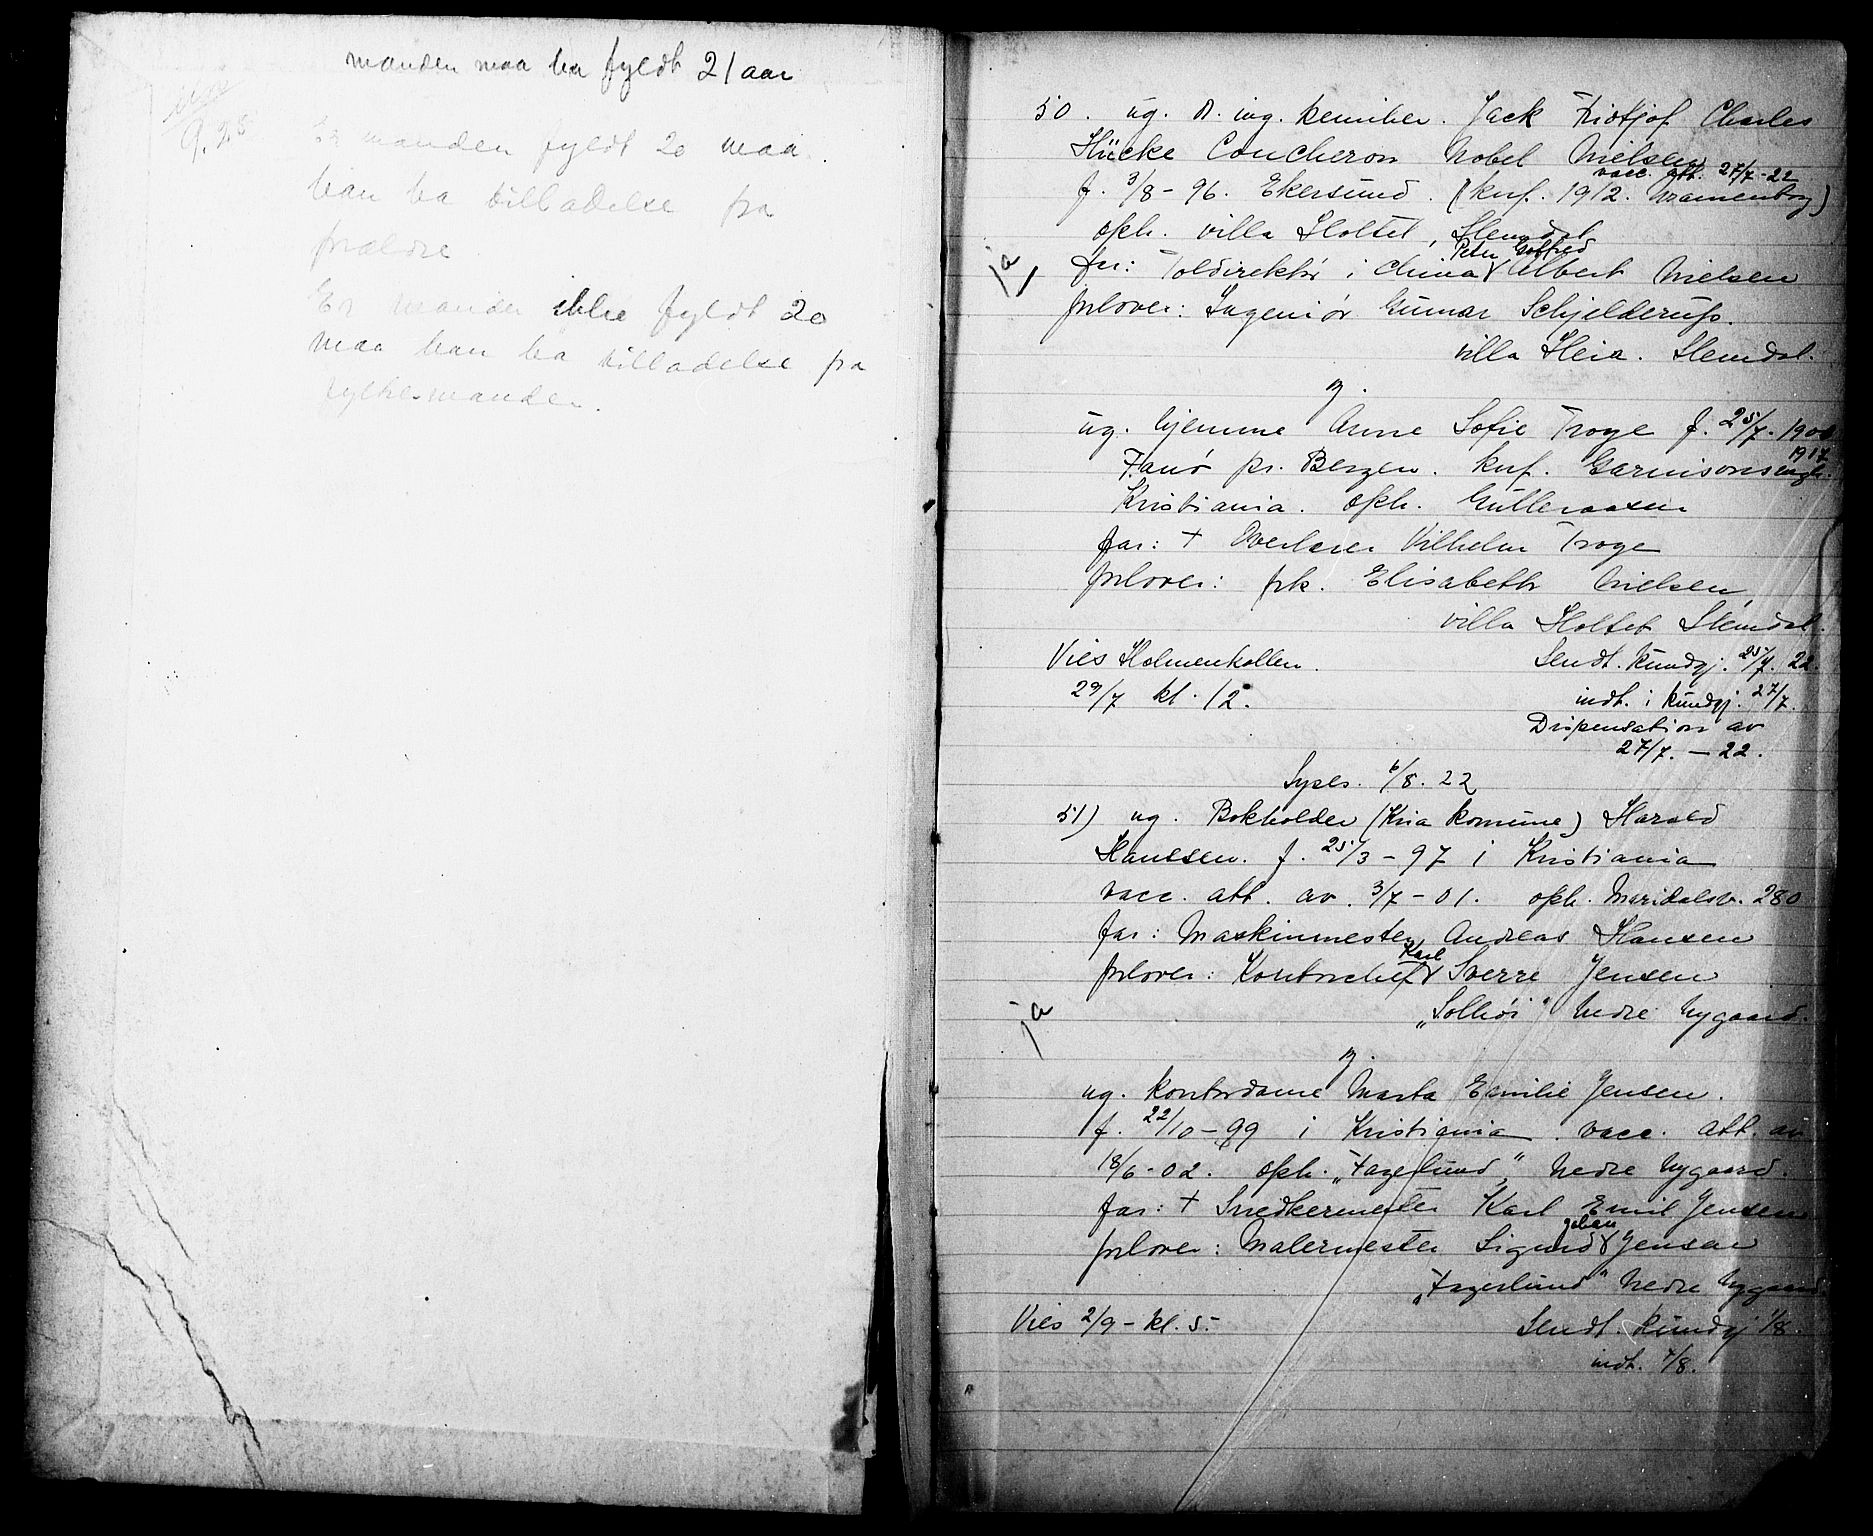 manden maa ha fyldt 21 aar
9.25
Er manden fyldt 20 maa
han ha tilladelse fra
forældre
Er manden ikke fyldt 20
maa han ha tilladelse fra
fylkesmanden.
50. ug. D. ing. kemiker. Jack Fridtjof Charles
Hücke Concheron Nobel Nielsen
vacc. att. 27/7-22
f. 3/8-96. Ekersund. (knf. 1912. Uranienborg)
oph. villa Holtet, Slemdal
Peter Gotfred
far: Tolddirektør i China Albert Nielsen
ja
forlover: Ingeniør Gunnar Schjelderup.
villa Heia. Slemdal.
og.
ug. hjemme Anne Sofie Troye f. 25/7. 1900
1917
Fanø pr. Bergen. knf. Garnisonsmgh.
Kristiania. oph. Gulleraasen
far: + Overlærer Vilhelm Troye
forlover: frk. Elisabeth Nielsen
villa Holtet Slemdal.
Vies Holmenkollen. Sendt. kundgj. 25/7. 22
29/7 kl. 12. indt. i kundgj. 27/7.
Dispensation av
27/7. - 22.
Lyses. 6/8. 22
51) ug. Bokholder (Kria komune) Harald
Hanssen. f. 25/3-97 i Kristiania
vacc. att. av. 3/7-01. oph. Maridalsv. 280
far: Maskinmester Andreas Hansen
Karl
forlover: Kontorchef Sverre Jensen
ja
"Solhøi" Nedre Nygaard.
og.
ug. kontordame Marta Emilie Jensen.
f. 22/10-99 i Kristiania. vacc. att. av
18/6-02. oph. "Fagerlund" Nedre Nygaard.
far: + Snedkermester Karl Emil Jensen
Johan
forlover: Malermester Sigurd Jensen
"Fagerlund" Nedre Nygaard
Vies 2/9 - kl. 5. Sendt. kundgj 1/8.
indt. 7/8.